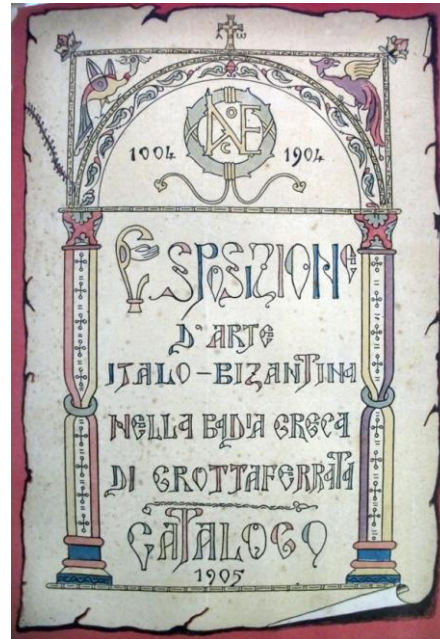 1004 1904
ESPOSIZIONE
D'ARTE
ITALO-BIZANTINA
NELLA BADIA GRECA
DI GROTTAFERRATA
CATALOGO
1905